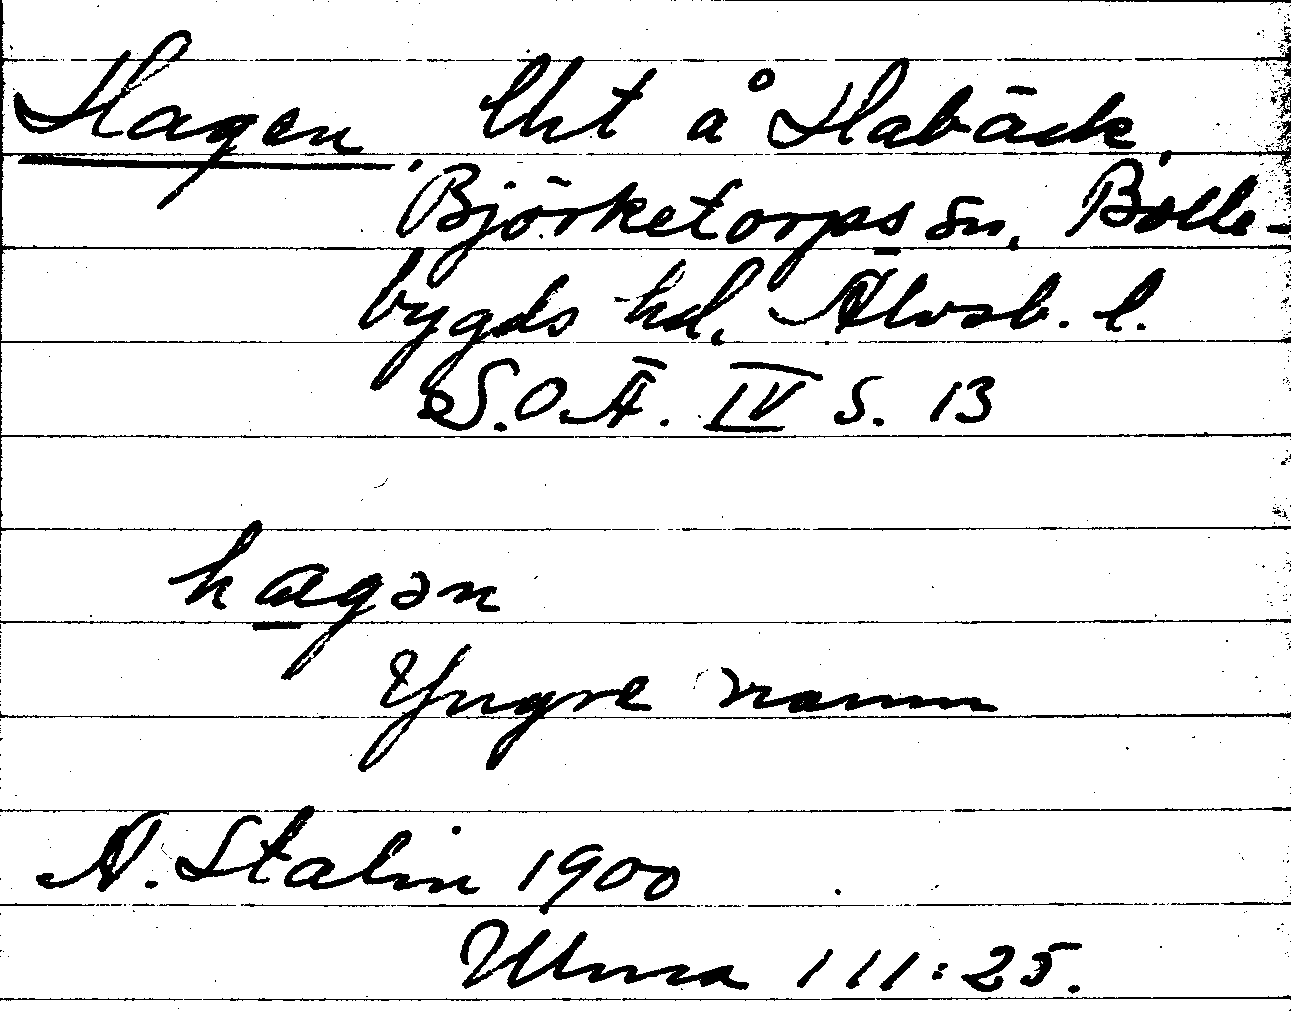 Hagen, lht å Habäck,
Björketorps sn, Bolle-
bygds hd, Älvsb. l.
S.O.Ä. IV S. 13
hagən
Yngre namn
A. Stalin 1900
Ulma 111:25.